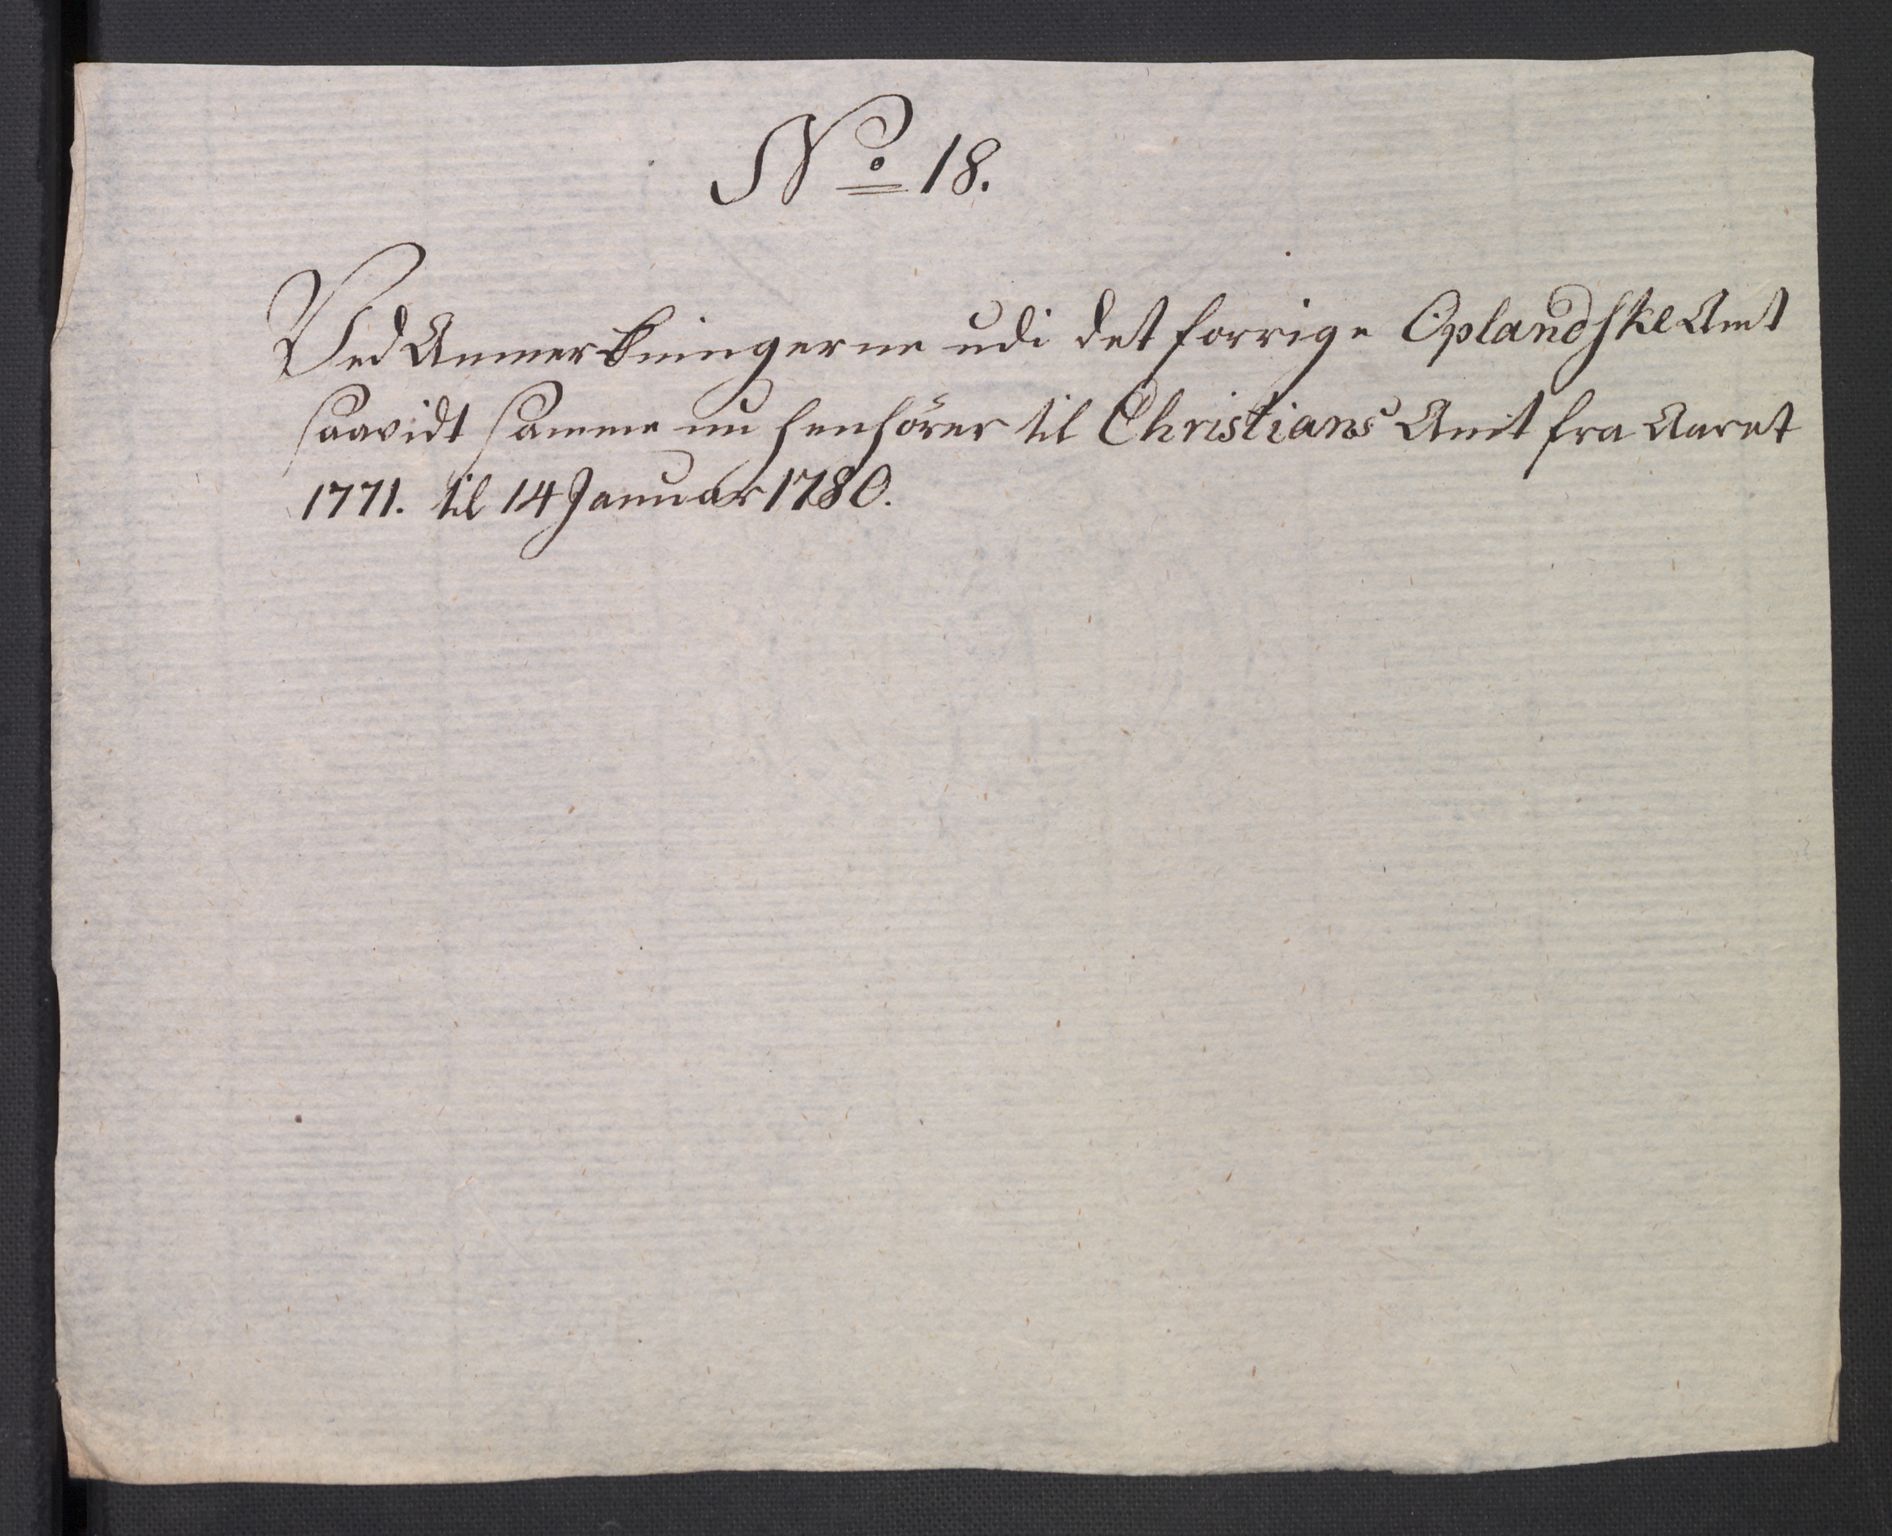 No 18.
Ved Anmerkningerne udi det forrige Oplandske Amt
saavidt samme nu henhörer til Christians Amt fra Aaret
1771. til 14 Januar 1780.